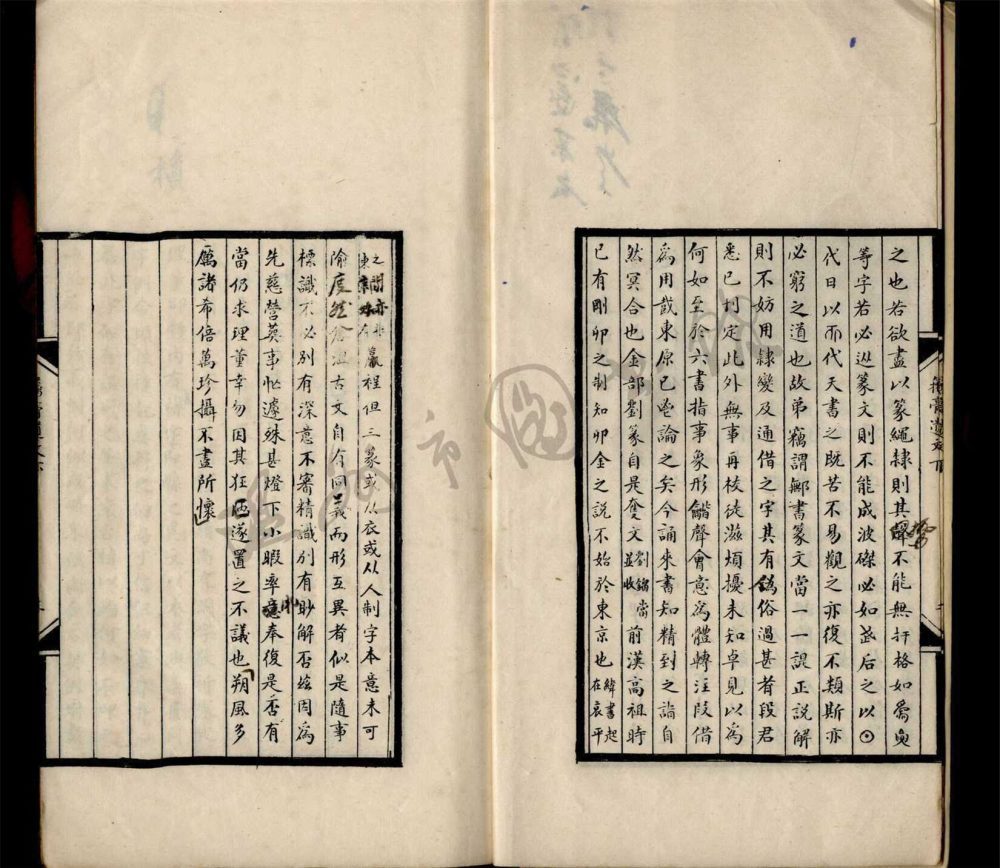 之也若欲盡以篆繩隸則其勢不能無扞格如
等字若必從篆文則不能成波磔必如武后之以⊙
代日以而代天書之既苦不易觀之亦復不類斯亦
必窮之道也故弟竊謂鄦書篆文當一一諟正說解
則不妨用隸變及通借之字其有偽俗過甚者段君
悉已刊定此外無事再校徒滋煩擾未知卓見以為
何如至於六書指事象形龤聲會意為體轉注叚借
為用哉東原已論之矣今誦來書知精到之詣自
然冥合也金部劉篆自是奪文劉鎦當並收前漢高祖時
已有剛卯之制知卯金之說不始於東京也緯書起在哀平
之間亦非東京
嬴程但三篆或从衣或从人制字本意未可
隃度然倉沮古文自有同義而形互異者似是隨事
標識不必別有深意不審精識別有眇解否茲因為
先慈營葬事怱遽殊甚燈下小暇率肊奉復是否有
當仍求理董幸勿因其狂陋遂置之不議也朔風多
厲諸希倍萬珍攝不盡所懷
籀膏遺文下